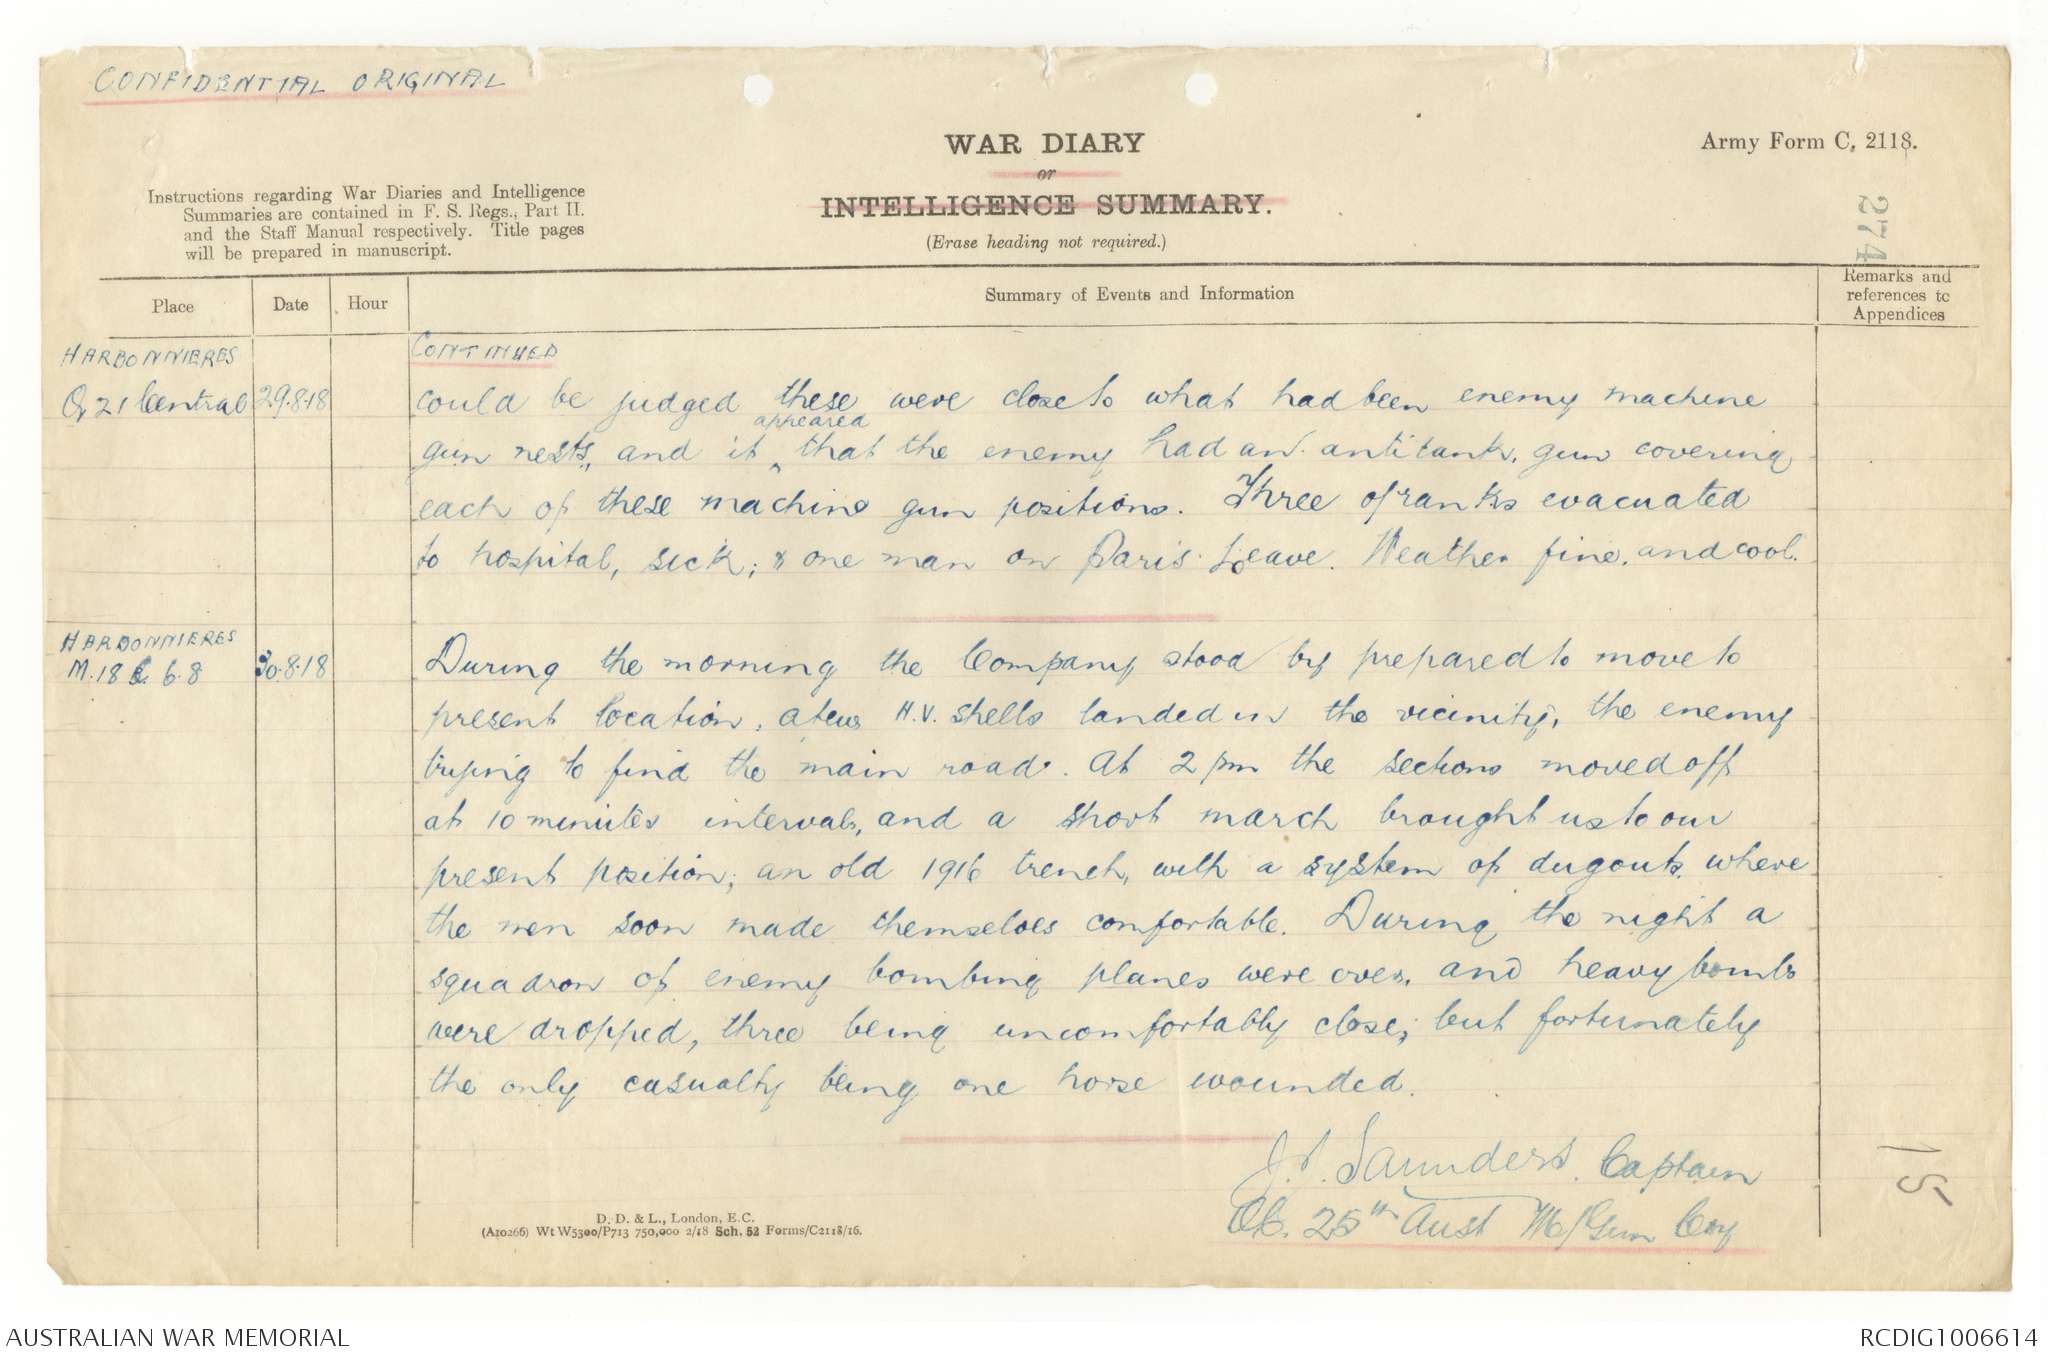 CONFIDENTIAL ORIGINAL
WAR DIARY
or
INTELLIGENCE SUMMARY.
(Erase heading not required.)
Army Form C. 2118.
274
Instructions regarding War Diaries and Intelligence
Summaries are contained in F. S. Regs., Part II.
and the Staff Manual respectively. Title pages
will be prepared in manuscript.
Place
Date
Hour
Summary of Events and Information
Remarks and
references to
Appendices
HARBONNIERES
CONTINUED
Q 21 Central 29.8.18 could be judged these were close to what had been enemy machine
appeared
gun nests, and it ^ that the enemy had an antitank gun covering
each of these machine gun positions. Three o/ranks evacuated
to hospital, sick; & one man on Paris Leave. Weather fine, and cool.
HARBONNIERES
M.18 6.8 30.8.18 During the morning the Company stood by prepared to move to
present location, a few H.V. shells landed in the vicinity, the enemy
trying to find the main road. At 2 pm the sections moved off
at 10 minutes intervals, and a short march brought us to our
present position; an old 1916 trench, with a system of dugouts, where
the men soon made themselves comfortable. During the night a
squadron of enemy bombing planes were over, and heavy bombs
were dropped, three being uncomfortably close; but fortunately
the only casualty being one horse wounded.
Saunders. Captain
OC. 25th Aust M/Gun Coy
15
D. D. & L., London, E.C.
(A10266) Wt W5300/P713 750,000 2/18 Sch. 52 Forms/C2118/16.
AUSTRALIAN WAR MEMORIAL
RCDIG1006614